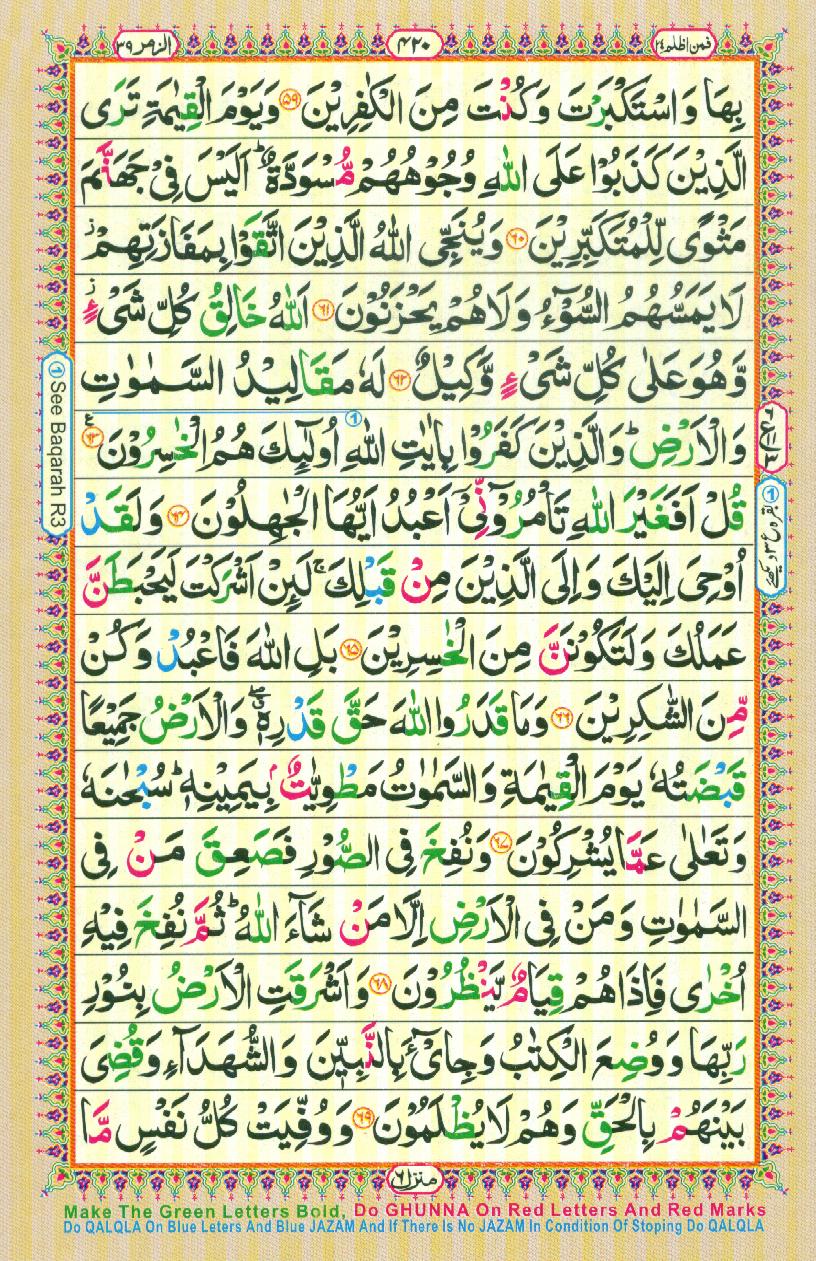 فمن اظلم ۲۴
۴۲۰
الزمر ۳۹
بِهَا وَ اسْتَكْبَرْتَ وَ كُنْتَ مِنَ الْكٰفِرِيْنَ ۵۹ وَ يَوْمَ الْقِيٰمَةِ تَرَى
الَّذِيْنَ كَذَبُوْا عَلَى اللّٰهِ وُجُوْهُهُمْ مُّسْوَدَّةٌ ؕ اَلَيْسَ فِيْ جَهَنَّمَ
مَثْوًى لِّلْمُتَكَبِّرِيْنَ ۶۰ وَ يُنَجِّى اللّٰهُ الَّذِيْنَ اتَّقَوْا بِمَفَازَتِهِمْ ز
لَا يَمَسُّهُمُ السُّوْٓءُ وَ لَا هُمْ يَحْزَنُوْنَ ۶۱ اَللّٰهُ خَالِقُ كُلِّ شَيْءٍ ز
وَّ هُوَ عَلٰى كُلِّ شَيْءٍ وَّكِيْلٌ ۶۲ لَهٗ مَقَالِيْدُ السَّمٰوٰتِ
وَ الْاَرْضِ ؕ وَ الَّذِيْنَ كَفَرُوْا بِاٰيٰتِ اللّٰهِ ۱ اُولٰٓئِكَ هُمُ الْخٰسِرُوْنَ ۶۳ ع
قُلْ اَفَغَيْرَ اللّٰهِ تَاْمُرُوْٓنِّيْٓ اَعْبُدُ اَيُّهَا الْجٰهِلُوْنَ ۶۴ وَ لَقَدْ
اُوْحِيَ اِلَيْكَ وَ اِلَى الَّذِيْنَ مِنْ قَبْلِكَ ۚ لَئِنْ اَشْرَكْتَ لَيَحْبَطَنَّ
عَمَلُكَ وَ لَتَكُوْنَنَّ مِنَ الْخٰسِرِيْنَ ۶۵ بَلِ اللّٰهَ فَاعْبُدْ وَ كُنْ
مِّنَ الشّٰكِرِيْنَ ۶۶ وَ مَا قَدَرُوا اللّٰهَ حَقَّ قَدْرِهٖ وَ الْاَرْضُ جَمِيْعًا
قَبْضَتُهٗ يَوْمَ الْقِيٰمَةِ وَ السَّمٰوٰتُ مَطْوِيّٰتٌۢ بِيَمِيْنِهٖ ؕ سُبْحٰنَهٗ
وَ تَعٰلٰى عَمَّا يُشْرِكُوْنَ ۶۷ وَ نُفِخَ فِى الصُّوْرِ فَصَعِقَ مَنْ فِى
السَّمٰوٰتِ وَ مَنْ فِى الْاَرْضِ اِلَّا مَنْ شَآءَ اللّٰهُ ؕ ثُمَّ نُفِخَ فِيْهِ
اُخْرٰى فَاِذَا هُمْ قِيَامٌ يَّنْظُرُوْنَ ۶۸ وَ اَشْرَقَتِ الْاَرْضُ بِنُوْرِ
رَبِّهَا وَ وُضِعَ الْكِتٰبُ وَ جِايْٓءَ بِالنَّبِيّٖنَ وَ الشُّهَدَآءِ وَ قُضِيَ
بَيْنَهُمْ بِالْحَقِّ وَ هُمْ لَا يُظْلَمُوْنَ ۶۹ وَ وُفِّيَتْ كُلُّ نَفْسٍ مَّا
منزل ۶
① See Baqarah R3
Make The Green Letters Bold, Do GHUNNA On Red Letters And Red Marks
Do QALQLA On Blue Leters And Blue JAZAM And If There Is No JAZAM In Condition Of Stoping Do QALQLA